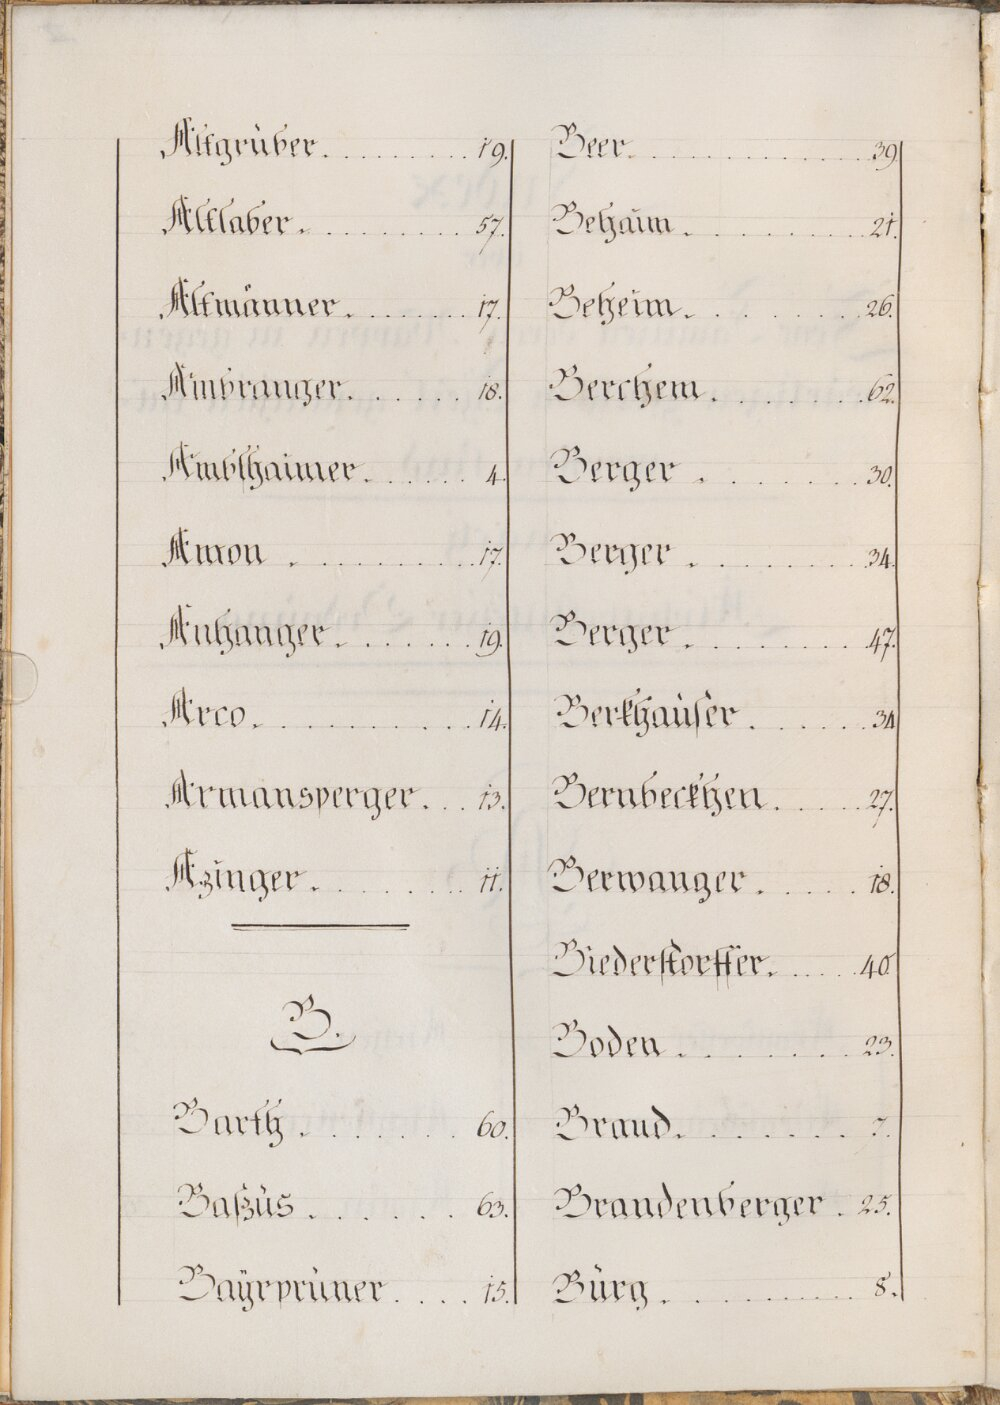 Altgruber. . . . . . . . . . 19.
Altlaber . . . . . . . . . 57.
Altmänner . . . . . . . 17.
Ambranger. . . . . . . 18.
Ambthaimer. . . . . . . 4.
Amon . . . . . . . . . . 17.
Anhanger . . . . . . . 19.
Arco. . . . . . . . . . . 14.
Armansperger . . . 13.
Azinger . . . . . . . . 11.
B.
Barth . . . . . . . 60.
Baßus . . . . . . . 63.
Baÿrpruner . . . . 15.
Beer. . . . . . . . . . . . . 39
Behaim . . . . . . . . . 21.
Beheim. . . . . . . . . 26.
Berchem . . . . . . . . 62.
Berger . . . . . . . . 30.
Berger . . . . . . . . 34.
Berger . . . . . . . . 47.
Berkhauser . . . . . . 34
Bernbeckhen . . . . . 27.
Berwanger . . . . . 18.
Biederstorffer. . . . . 40
Boden . . . . . . . . 23.
Brand. . . . . . . . 7.
Brandenberger . 25.
Bürg . . . . . . . . . . 8.